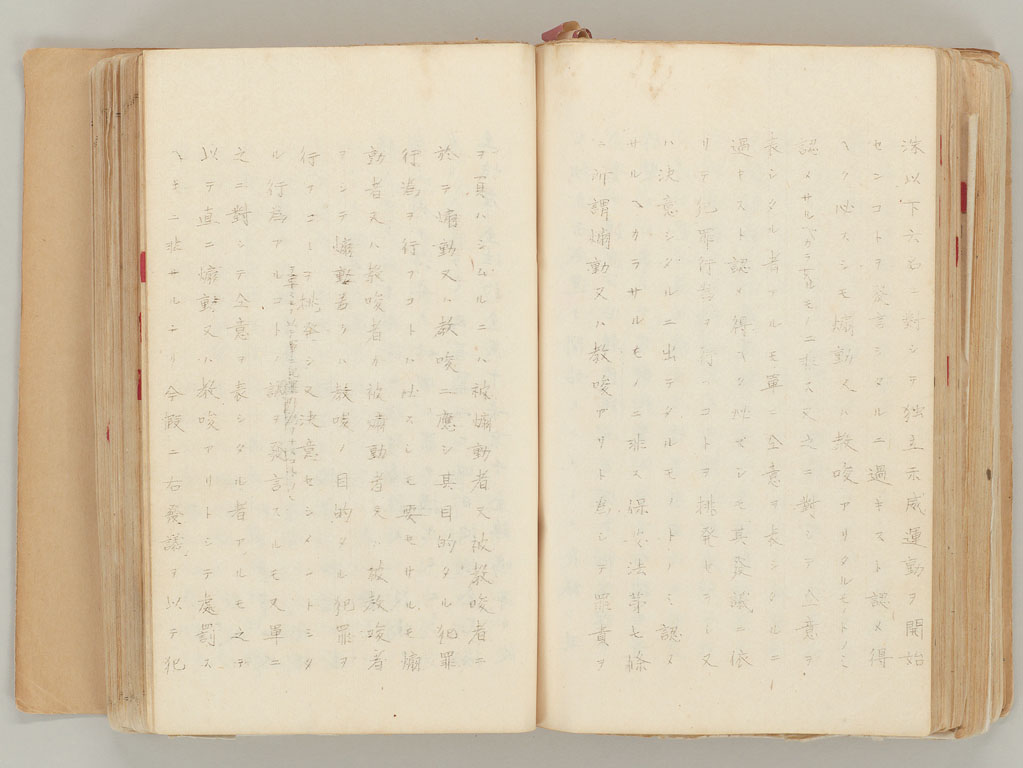 洙以下六名ニ對シテ独立示威運動ヲ開始
センコトヲ發言シタルニ過キスト認メ得
ヘク必スシモ煽動又ハ教唆アリタルモノトノミ
認メサルヘカラサルモノニ非ス又之ニ對シテ仝意ヲ
表シタル者アルモ單ニ仝意ヲ表シタルニ
過キスト認メ得ヘク必ゼシモ其發議ニ依
リテ犯罪行爲ヲ行フコトヲ挑発セラレ又
ハ決意シタルニ出テタルモノトノミ認ス
サルヘカラサルモノニ非ス保安法第七條
ニ所謂煽動又ハ教唆アリト為シテ罪責ヲ
ヲ負ハシムルニハ被煽動者又被教唆者ニ
於テ煽動又ハ教唆ニ應シ其目的タル犯罪
行為ヲ行フコトハ必スシモ要セサルモ煽
動者又ハ教唆者カ被煽動者又ハ被教唆者
ヲシテ煽動若クハ教唆ノ目的タル犯罪ヲ
行フコトヲ挑発シ又決意セシメントシタ
ル行為アルコト
ヲ發言スルモ又單ニ
之ニ對シテ仝意ヲ表シタル者アルモ之ヲ
以テ直ニ煽動又ハ教唆アリトシテ處罰ス
ヘキニ非サルナリ今假ニ右發議ヲ以テ犯